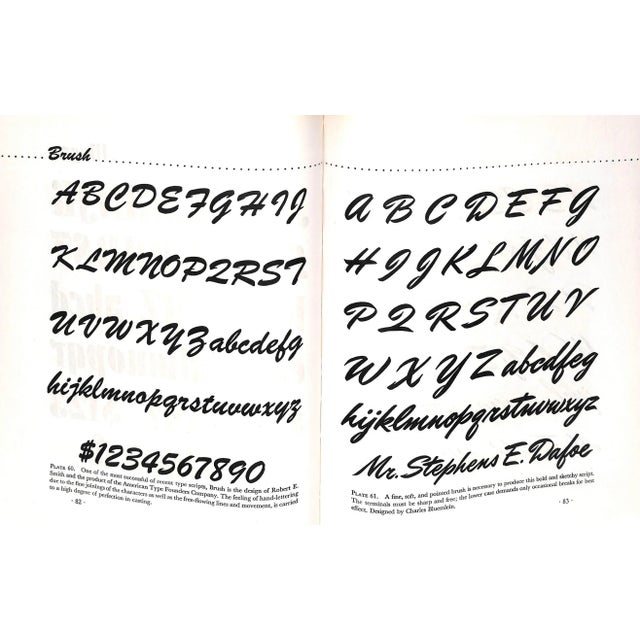 Brush
ABCDEFGHIJ
KLMNOPQRST
UVWXYZabcdefg
hijklmnopqrstuvwxyz
$1234567890
PLATE 60. One of the most successful of recent type scripts, Brush is the design of Robert E.
Smith and the product of the American Type Founders Company. The feeling of hand-lettering
due to the fine joinings of the characters as well as the free-flowing lines and movement, is carried
to a high degree of perfection in casting.
· 82 ·
A B C D E F G
H I J K L M N O
P Q R S T U V
W X Y Z abcdfeg
hijklmnopqrstuvwxyz
Mr. Stephens E. Dafoe
PLATE 61. A fine, soft, and pointed brush is necessary to produce this bold and sketchy script.
The terminals must be sharp and free; the lower case demands only occasional breaks for best
effect. Designed by Charles Bluemlein.
· 83 ·